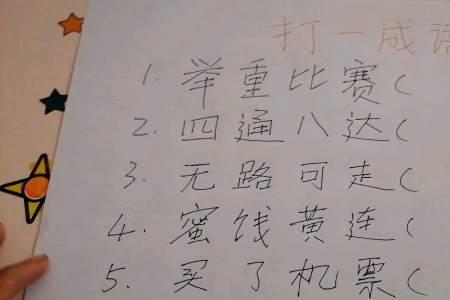 打一成语
1. 举重比赛(
2. 四通八达(
3. 无路可走(
4. 蜜饯黄连(
5. 买了机票(